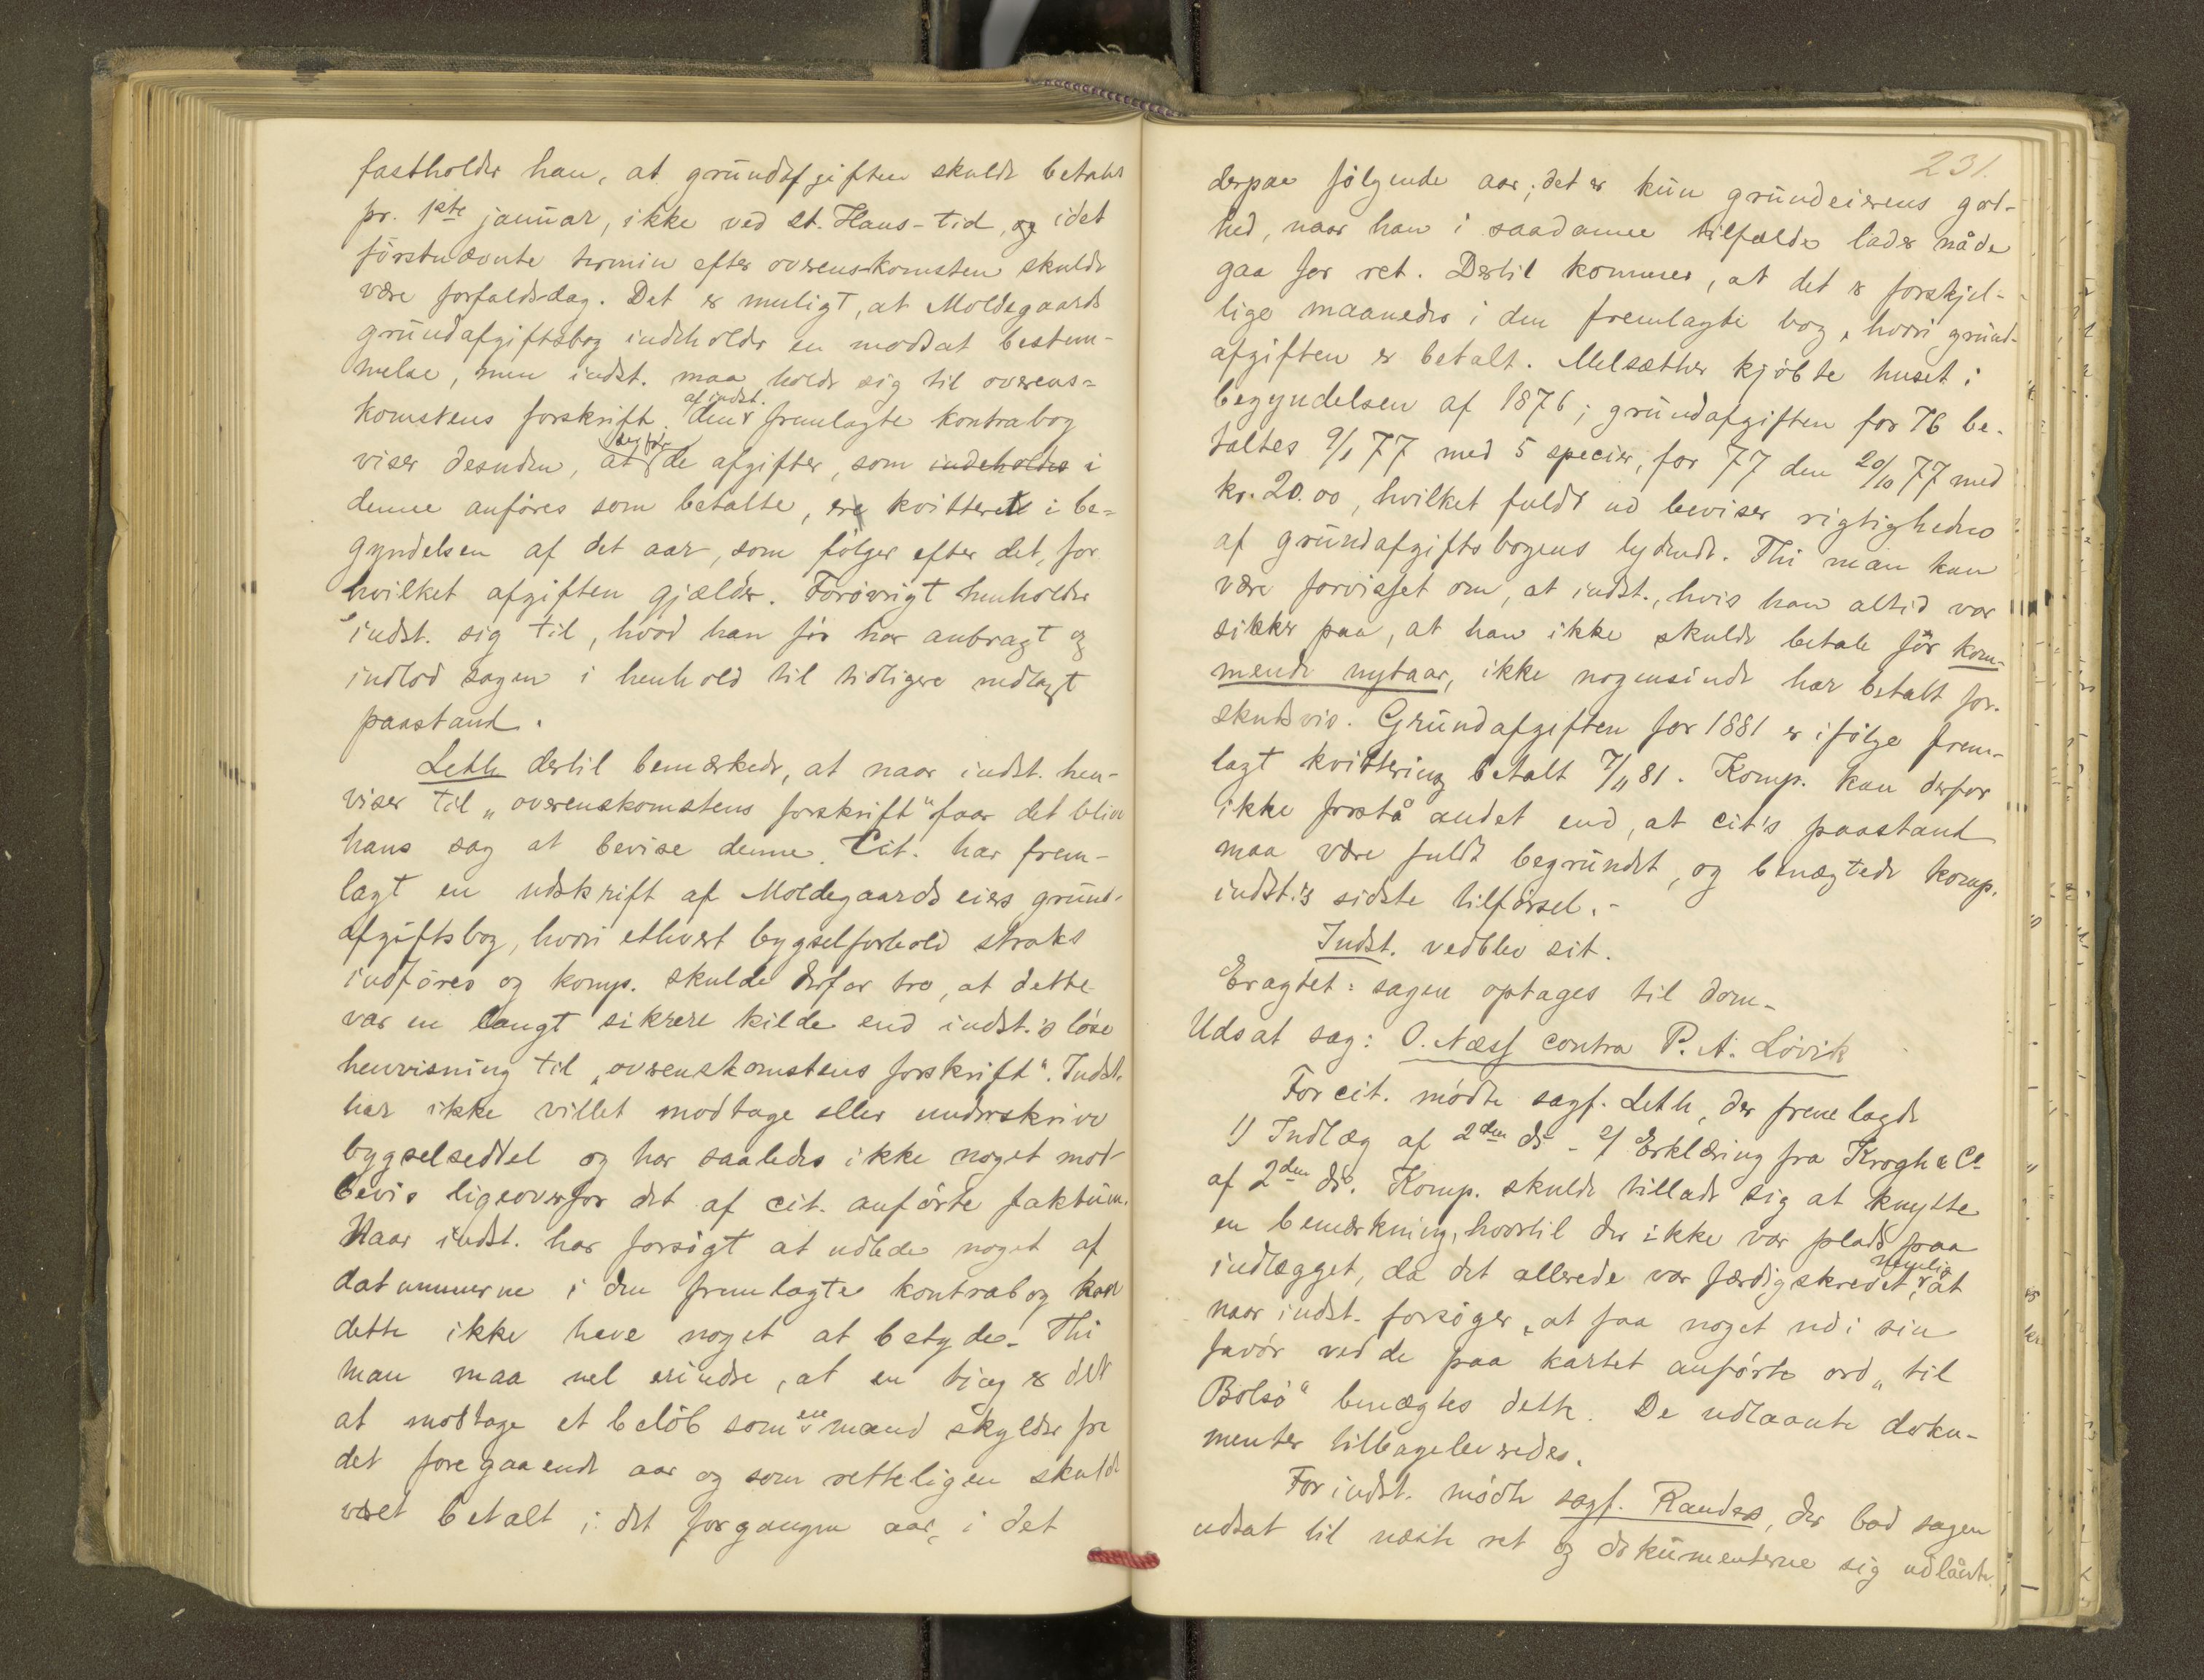 fastholder han, at grundafgiften skulde betales
pr. 1ste januar, ikke ved St. Hans-tid, og idet
førstnævnte termin efter overenskomsten skulde
være forfaldsdag. Det er muligt, at Moldegaards
grundafgiftsbog indeholder en modsat bestem-
melse, men indst. maa holde sig til overens=
komstens forskrift. Den af indst. fremlagte kontrabog
viser desuden, at de afgifter, som indeholdes i
denne anføres som betalte, ere kvitterete i be=
gyndelsen af det aar, som følger efter det, for
hvilket afgiften gjælder. Forøvrigt henholder
indst. sig til, hvad han før har anbragt og
indlod sagen i henhold til tidligere nedlagt
paastand.
Leth dertil bemærkede, at naar indst. hen-
viser til „overenskomstens forskrift" faar det blive
hans sag at bevise denne. Cit. har frem-
lagt en udskrift af Moldegaards eiers grund-
afgiftsbog, hvori ethvert bygselforhold straks
indføres og komp. skulde derfor tro, at dette
var en langt sikrere kilde end indst.'s løse
henvisning til „overenskomstens forskrift". Indst.
har ikke villet modtage eller underskrive
bygselseddel og har saaledes ikke noget mod-
bevis ligeoverfor det af cit. anførte faktum.
Naar indst. har forsøgt at udlede noget af
datummerne i den fremlagte kontrabog kan
dette ikke have noget at betyde. Thi
man maa vel erindre, at en ting er det
at modtage et beløb som en mand skylder fra
det foregaaende aar og som retteligen skulde
været betalt i det forgangne aar, i det
231.
derpaa følgende aar; det er kun grundeierens god-
hed, naar han i saadanne tilfælde lader nåde
gaa for ret. Dertil kommer, at det er forskjel-
lige maaneder i den fremlagte bog, hvori grund-
afgiften er betalt. Melsæther kjøbte huset i
begyndelsen af 1876; grundafgiften for 76 be-
taltes 9/1 77 med 5 specier, for 77 den 20/10 77 med
kr. 20.00, hvilket fuldt ud beviser rigtigheden
af grundafgiftsbogens lydende. Thi man kan
være forvisset om, at indst., hvis han altid var
sikker paa, at han ikke skulde betale før kom-
mende nytaar, ikke nogensinde har betalt for-
skudsvis. Grundafgiften for 1881 er ifølge frem-
lagt kvittering betalt 7/11 81. Komp. kan derfor
ikke forstå andet end, at cit's paastand
maa være fuldt begrundet, og benægtede komp.
indst.'s sidste tilførsel.-
Indst. vedblev sit.
Eragtet: sagen optages til dom-
Udsat sag: O. Næss contra P. A. Løvik
For cit. mødte sagf. Leth, der fremlagde
1) Indlæg af 2den ds - 2) Erklæring fra Krogh & Co
af 2den ds. Komp. skulde tillade sig at knytte
en bemærkning, hvortil der ikke var plads paa
indlægget, da det allerede var færdigskrevet, nemlig at
naar indst. forsøger, at faa noget ud i sin
favør ved de paa kartet anførte ord „til
Bolsø" benægtes dette. De udlaante doku-
menter tilbageleveredes.
For indst. mødte sagf. Randers, der bad sagen
udsat til næste ret og dokumenterne sig udlånte.